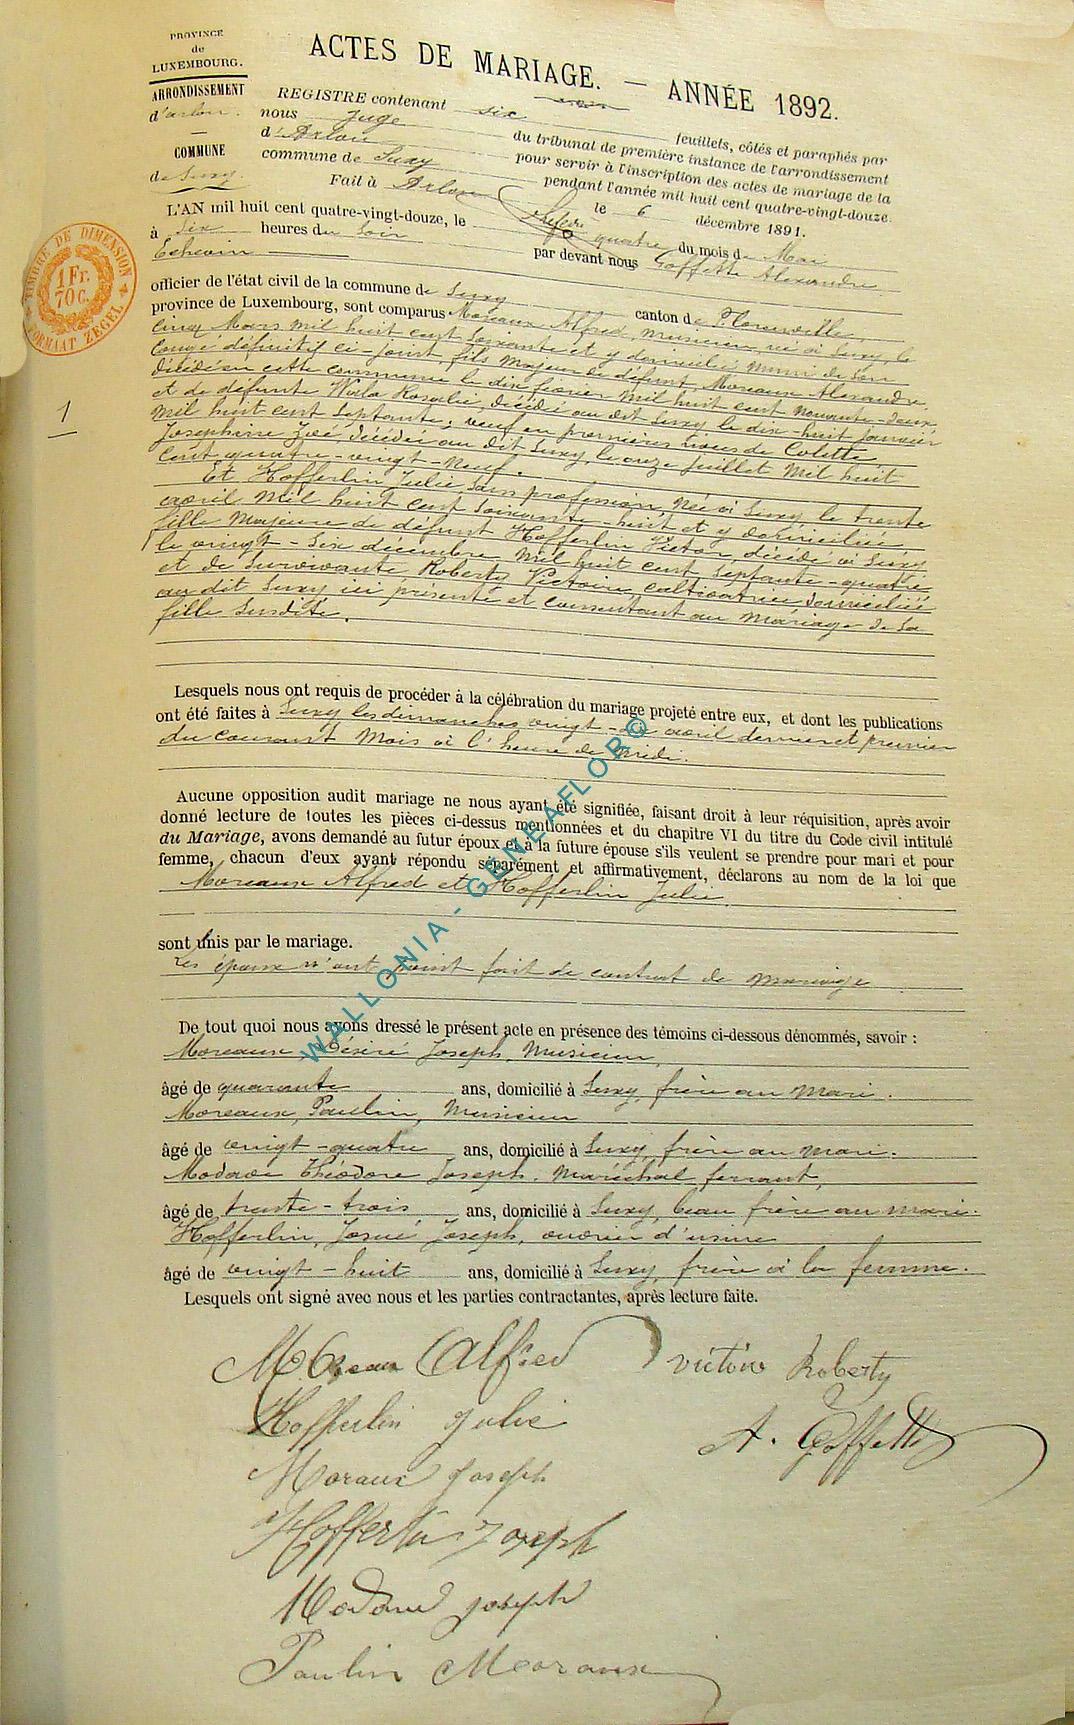 PROVINCE
de
LUXEMBOURG.
ARRONDISSEMENT
d'arlon.
COMMUNE
de Suxy.
ACTES DE MARIAGE. — ANNÉE 1892.
REGISTRE contenant six feuillets, côtés et paraphés par
nous Juge du tribunal de première instance de l'arrondissement
d'Arlon pour servir à l'inscription des actes de mariage de la
commune de Suxy pendant l'année mil huit cent quatre-vingt-douze.
Fait à Arlon le 6 décembre 1891.
TIMBRE DE DIMENSION
1 Fr.
70 c.
FORMAAT ZEGEL
L'AN mil huit cent quatre-vingt-douze, le quatre du mois de Mai
à Six heures du Soir par devant nous Goffette Alexandre
Echevin
officier de l'état civil de la commune de Suxy canton de Florenville,
province de Luxembourg, sont comparus Moreaux Alfred, musicien, né à Suxy, le
cinq Mars mil huit cent soixante et y domicilié muni de son
Congé définitif ci-joint, fils majeur de défunt Moreaux Alexandre,
décédé en cette commune le dix février mil huit cent nonante-deux,
et de défunte Warla Rosalie, décédée au dit Suxy le dix-huit janvier
mil huit cent septante, veuf en premières noces de Colette
Josephine Zoé, décédée au dit Suxy, le onze juillet mil huit
cent quatre-vingt-neuf.
1
Et Hofferlin Julie sans profession, née à Suxy le trente
avril mil huit cent soixante-huit et y domiciliée
fille Majeure de défunt Hofferlin Victor, décédé à Suxy
le vingt-six décembre mil huit cent septante-quatre
et de survivante Roberty Victoire, cultivatrice, domiciliée
au dit Suxy ici présente et consentant au mariage de sa
fille susdite.
Lesquels nous ont requis de procéder à la célébration du mariage projeté entre eux, et dont les publications
ont été faites à Suxy les dimanches vingt- avril dernier et premier
du courant Mois à l'heure de midi.
Aucune opposition audit mariage ne nous ayant été signifiée, faisant droit à leur réquisition, après avoir
donné lecture de toutes les pièces ci-dessus mentionnées et du chapitre VI du titre du Code civil intitulé
du Mariage, avons demandé au futur époux et à la future épouse s'ils veulent se prendre pour mari et pour
femme, chacun d'eux ayant répondu séparément et affirmativement, déclarons au nom de la loi que
Moreaux Alfred et Hofferlin Julie.
sont unis par le mariage.
Les époux n'ont point fait de contrat de mariage
De tout quoi nous avons dressé le présent acte en présence des témoins ci-dessous dénommés, savoir :
Moreaux, Désiré Joseph, Musicien,
âgé de quarante ans, domicilié à Suxy, frère au mari.
Moreaux, Paulin, Musicien
âgé de vingt-quatre ans, domicilié à Suxy, frère au mari.
Modave Théodore Joseph, Maréchal ferrant,
âgé de trente-trois ans, domicilié à Suxy, beau frère au mari.
Hofferlin, Josué Joseph, ouvrier d'usine
âgé de vingt-huit ans, domicilié à Suxy, frère à la femme.
Lesquels ont signé avec nous et les parties contractantes, après lecture faite.
Moreau Alfred
victoire Roberty
Hofferlin Julie
A. Goffette
Moraux Joseph
Hofferlin Joseph
Modave joseph
Paulin Moraux
WALLONIA - GENEAFLOR©